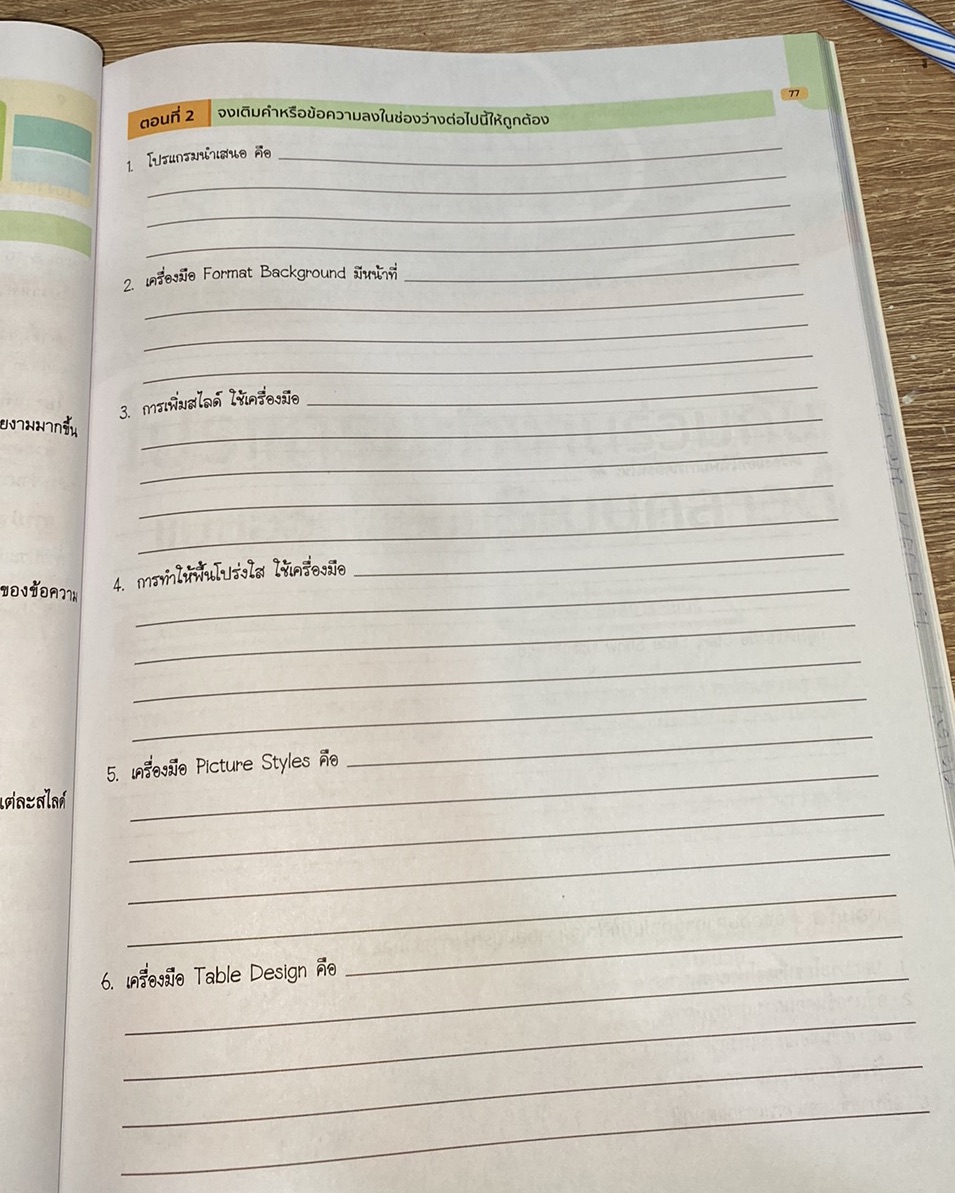 77
ตอนที่ 2 จงเติมคำหรือข้อความลงในช่องว่างต่อไปนี้ให้ถูกต้อง
1. โปรแกรมนำเสนอ คือ
2. เครื่องมือ Format Background มีหน้าที่
3. การเพิ่มสไลด์ ใช้เครื่องมือ
4. การทำให้พื้นโปร่งใส ใช้เครื่องมือ
5. เครื่องมือ Picture Styles คือ
6. เครื่องมือ Table Design คือ
ของข้อความ
แต่ละสไลด์